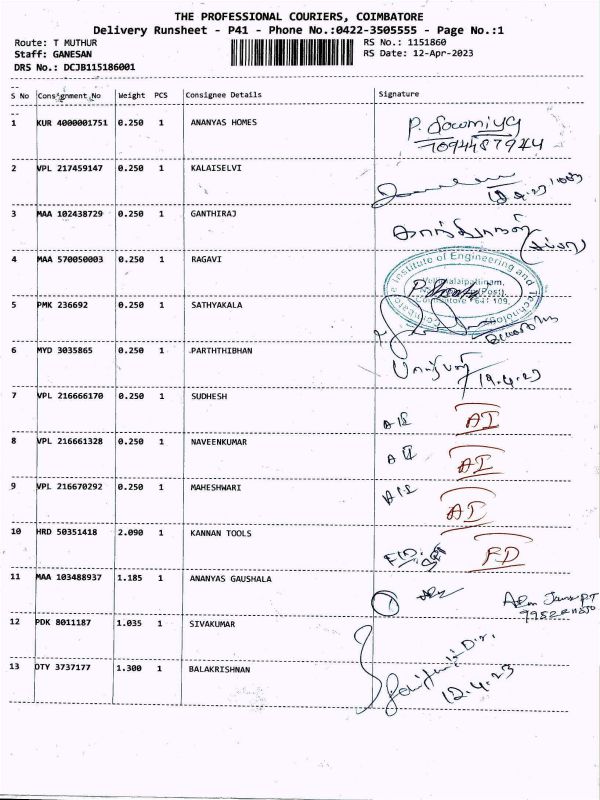 THE PROFESSIONAL COURIERS, COIMBATORE
Delivery Runsheet - P41 - Phone No.:0422-3505555 - Page No.:1
Route: T MUTHUR RS No.: 1151860
Staff: GANESAN RS Date: 12-Apr-2023
DRS No.: DCJB115186001
S No Consignment No Weight PCS Consignee Details Signature
1 KUR 4000001751 0.250 1 ANANYAS HOMES P. Sowmiya
7094487944
2 VPL 217459147 0.250 1 KALAISELVI
3 MAA 102438729 0.250 1 GANTHIRAJ
4 MAA 570050003 0.250 1 RAGAVI
Institute of Engineering and
5 PMK 236692 0.250 1 SATHYAKALA
6 MYD 3035865 0.250 1 PARTHTHIBHAN
7 VPL 216666170 0.250 1 SUDHESH AI
8 VPL 216661328 0.250 1 NAVEENKUMAR AI
9 VPL 216670292 0.250 1 MAHESHWARI AI
10 HRD 50351418 2.090 1 KANNAN TOOLS FD
11 MAA 103488937 1.185 1 ANANYAS GAUSHALA
12 PDK 8011187 1.035 1 SIVAKUMAR
13 OTY 3737177 1.300 1 BALAKRISHNAN 12.4.23